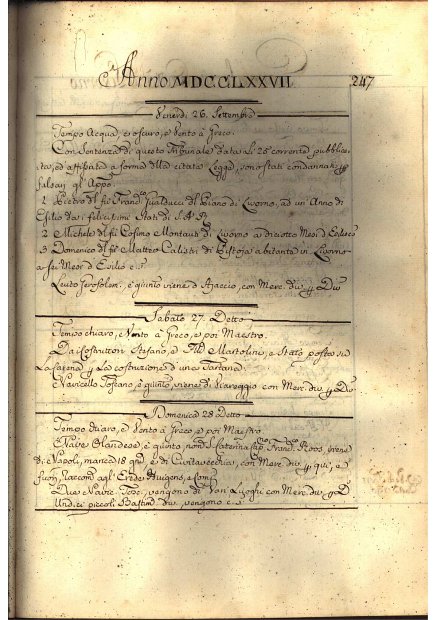 Anno MDCCLXXVII
247
Venerdì 26. Settembre
Tempo Acqua, e oscuro, e Vento à Greco.
Con Sentenza di questo Tribunale data li 25 corrente pubblica-
ta, ed affissata a forma della citata Legge, sono stati condannati
gl' App.
1. Pietro del fù Fran.co del Piano di Livorno, ad un' Anno di
Esilio da i felicissimi Stati di S. A. R.
2 Michele del fù Cosimo Montauti di Livorno a diciotto Mesi d' Esilio
3 Domenico del fù Matteo Calisti di Pistoja abitante in Livorno
a sei Mesi d' Esilio
Leuto Gerosolim. è giunto viene d' Ajaccio, con Merc. div. p Div.
Sabato 27. Detto
Tempo chiaro, e Vento à Greco, e poi Maestro.
Da i Costruttori Stefano, e Martolini, è stato posto su
La Carena p La costruzione d' una Tartana.
Navicello Toscano, è giunto, viene di Viareggio con Merc. div. p Div.
Domenica 28 Detto
Tempo chiaro, e Vento à Greco, e poi Maestro
Nave Olandese, è giunta, nom. S. Caterina Cap. Franc. Roos, viene
di Napoli, manca 18 gni, e di Civitavecchia, con Merc. div. p qui, e
fuori, Raccom. agl' Eredi Huigens, e Comp.
Due Navi Tosc. vengono di Van. Luoghi con Merc. div. p D
Undici piccoli Bastim. div. vengono